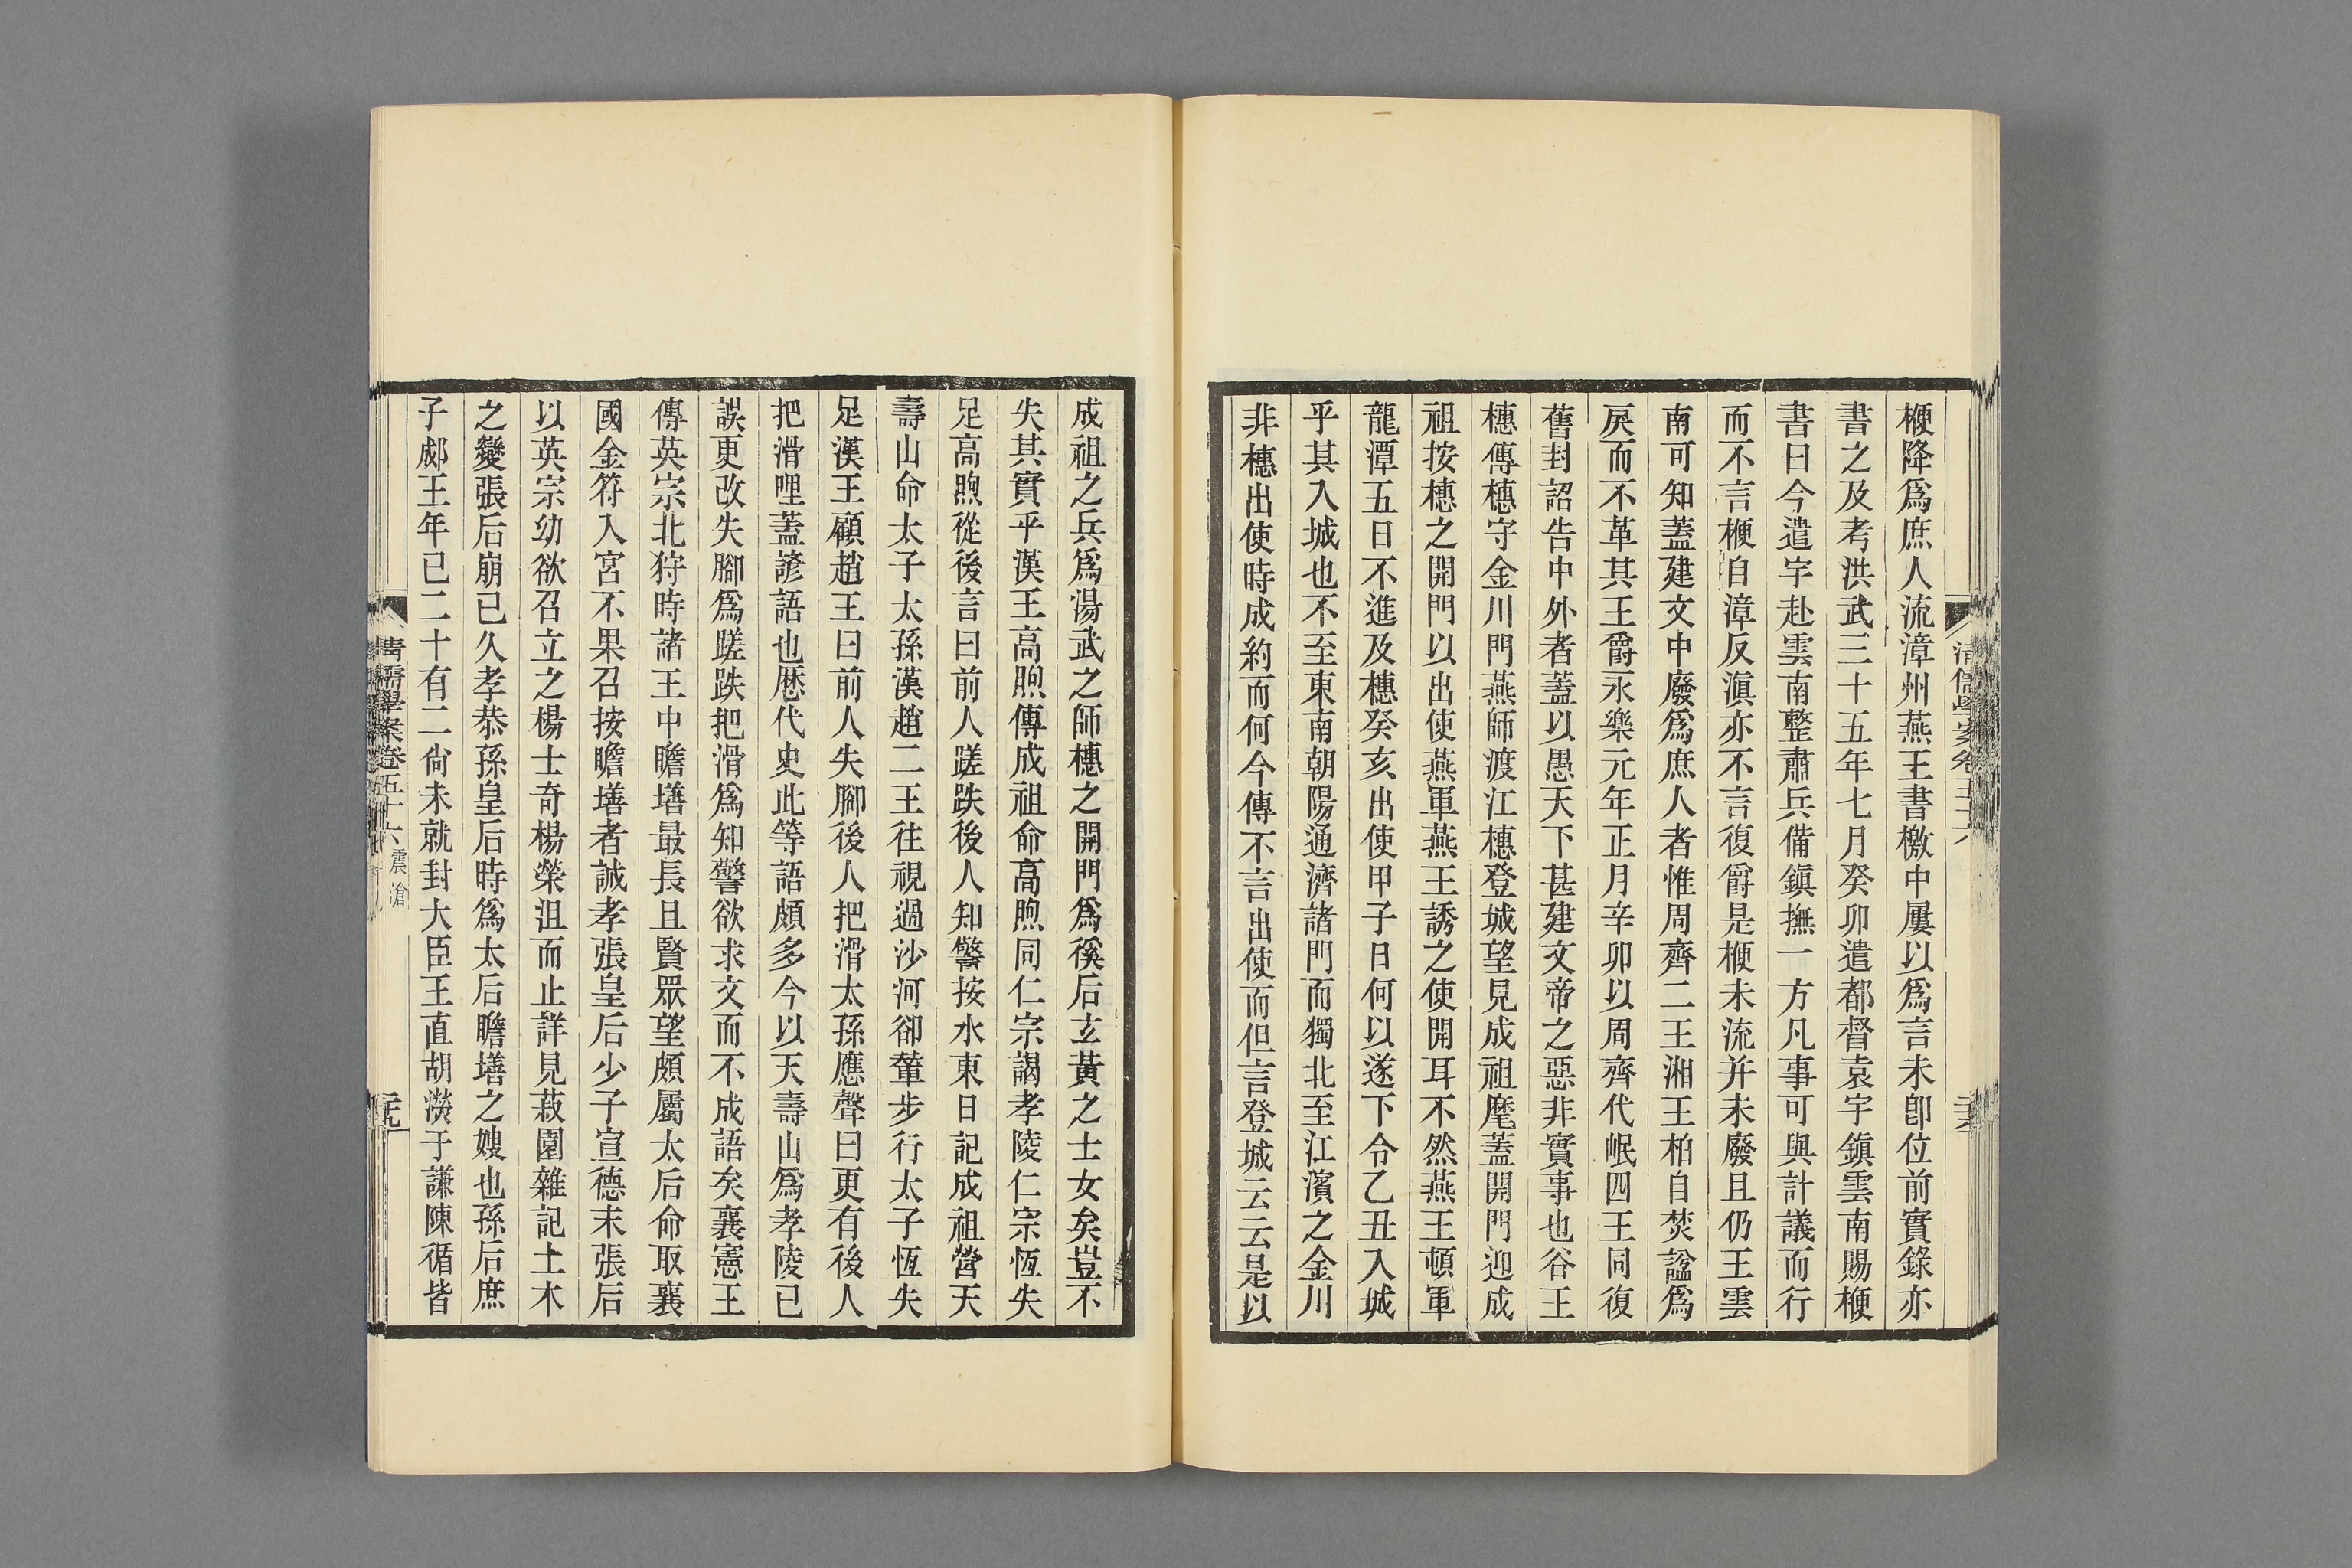 楩降爲庶人流漳州燕王書檄中屢以爲言未卽位前實錄亦
書之及考洪武三十五年七月癸卯遣都督袁宇鎮雲南賜楩
書曰今遣宇赴雲南整肅兵備鎮撫一方凡事可與計議而行
而不言楩自漳反滇亦不言復爵是楩未流并未廢且仍王雲
南可知蓋建文中廢爲庶人者惟周齊二王湘王柏自焚諡爲
戾而不革其王爵永樂元年正月辛卯以周齊代岷四王同復
舊封詔告中外者蓋以愚天下甚建文帝之惡非實事也谷王
橞傳橞守金川門燕師渡江橞登城望見成祖麾蓋開門迎成
祖按橞之開門以出使燕軍燕王誘之使開耳不然燕王頓軍
龍潭五日不進及橞癸亥出使甲子日何以遂下令乙丑入城
乎其入城也不至東南朝陽通濟諸門而獨北至江濱之金川
非橞出使時成約而何今傳不言出使而但言登城云云是以
成祖之兵爲湯武之師橞之開門爲徯后玄黃之士女矣豈不
失其實乎漢王高煦傳成祖命高煦同仁宗謁孝陵仁宗恆失
足高煦從後言曰前人蹉跌後人知警按水東日記成祖營天
壽山命太子太孫漢趙二王往視過沙河卻輦步行太子恆失
足漢王顧趙王曰前人失腳後人把滑太孫應聲曰更有後人
把滑哩蓋諺語也歷代史此等語頗多今以天壽山爲孝陵已
誤更改失腳爲蹉跌把滑爲知警欲求文而不成語矣襄憲王
傳英宗北狩時諸王中瞻墡最長且賢眾望頗屬太后命取襄
國金符入宮不果召按瞻墡者誠孝張皇后少子宣德末張后
以英宗幼欲召立之楊士奇楊榮沮而止詳見菽園雜記土木
之變張后崩已久孝恭孫皇后時爲太后瞻墡之嫂也孫后庶
子郕王年已二十有二尙未就封大臣王直胡濙于謙陳循皆
清儒學案卷五十六 震滄